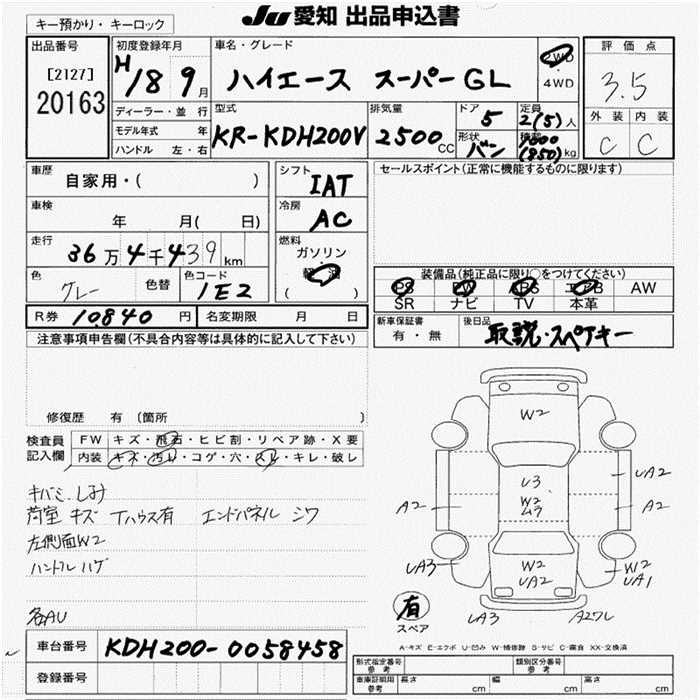 JU 愛知 出品申込書
キー預かり・キーロック
出品番号
[2127]
20163
初度登録年月
H18 9月
車名・グレード
ハイエース スーパーGL
2WD
4WD
評価点
3.5
外装 内装
C C
ディーラー・並行
モデル年式 年
ハンドル 左・右
型式
KR-KDH200V
排気量
2500 CC
ドア
5
形状
バン
定員
2(5)人
積載
1000
(850)kg
車歴
自家用・( )
車検
年 月( 日)
走行
36万4千439km
色
グレー
色替
色コード
1E2
シフト
IAT
冷房
AC
燃料
ガソリン
軽油
( )
セールスポイント(正常に機能するものに限ります)
装備品(純正品に限り○をつけてください)
PS PW ABS エアB AW
SR ナビ TV 本革
R券 10.840 円 名変期限 月 日
新車保証書
有・無
後日品
取説・スペアキー
注意事項申告欄(不具合内容等は具体的に記入して下さい)
修復歴 有(箇所 )
検査員
記入欄
FW キズ・飛石・ヒビ割・リペア跡・X要
内装 キズ・汚れ・コゲ・穴・スレ・キレ・破レ
キバミ.しみ
荷室 キズ Tハウス有 エンドパネル シワ
左側面W2
ハンドルハゲ
各AU
W2
U3
W2
ムラ
W2
UA2
A2
UA2
A2
UA3
W2
UA1
UA3
A27L
有
スペア
A-キズ E-エクボ U-凹み W-補修跡 S-サビ C-腐食 XX-交換済
車台番号 KDH200-0058458
登録番号
形式指定番号
参考
類別区分番号
参考
車庫証明用
参考
長さ cm 幅 cm 高さ cm